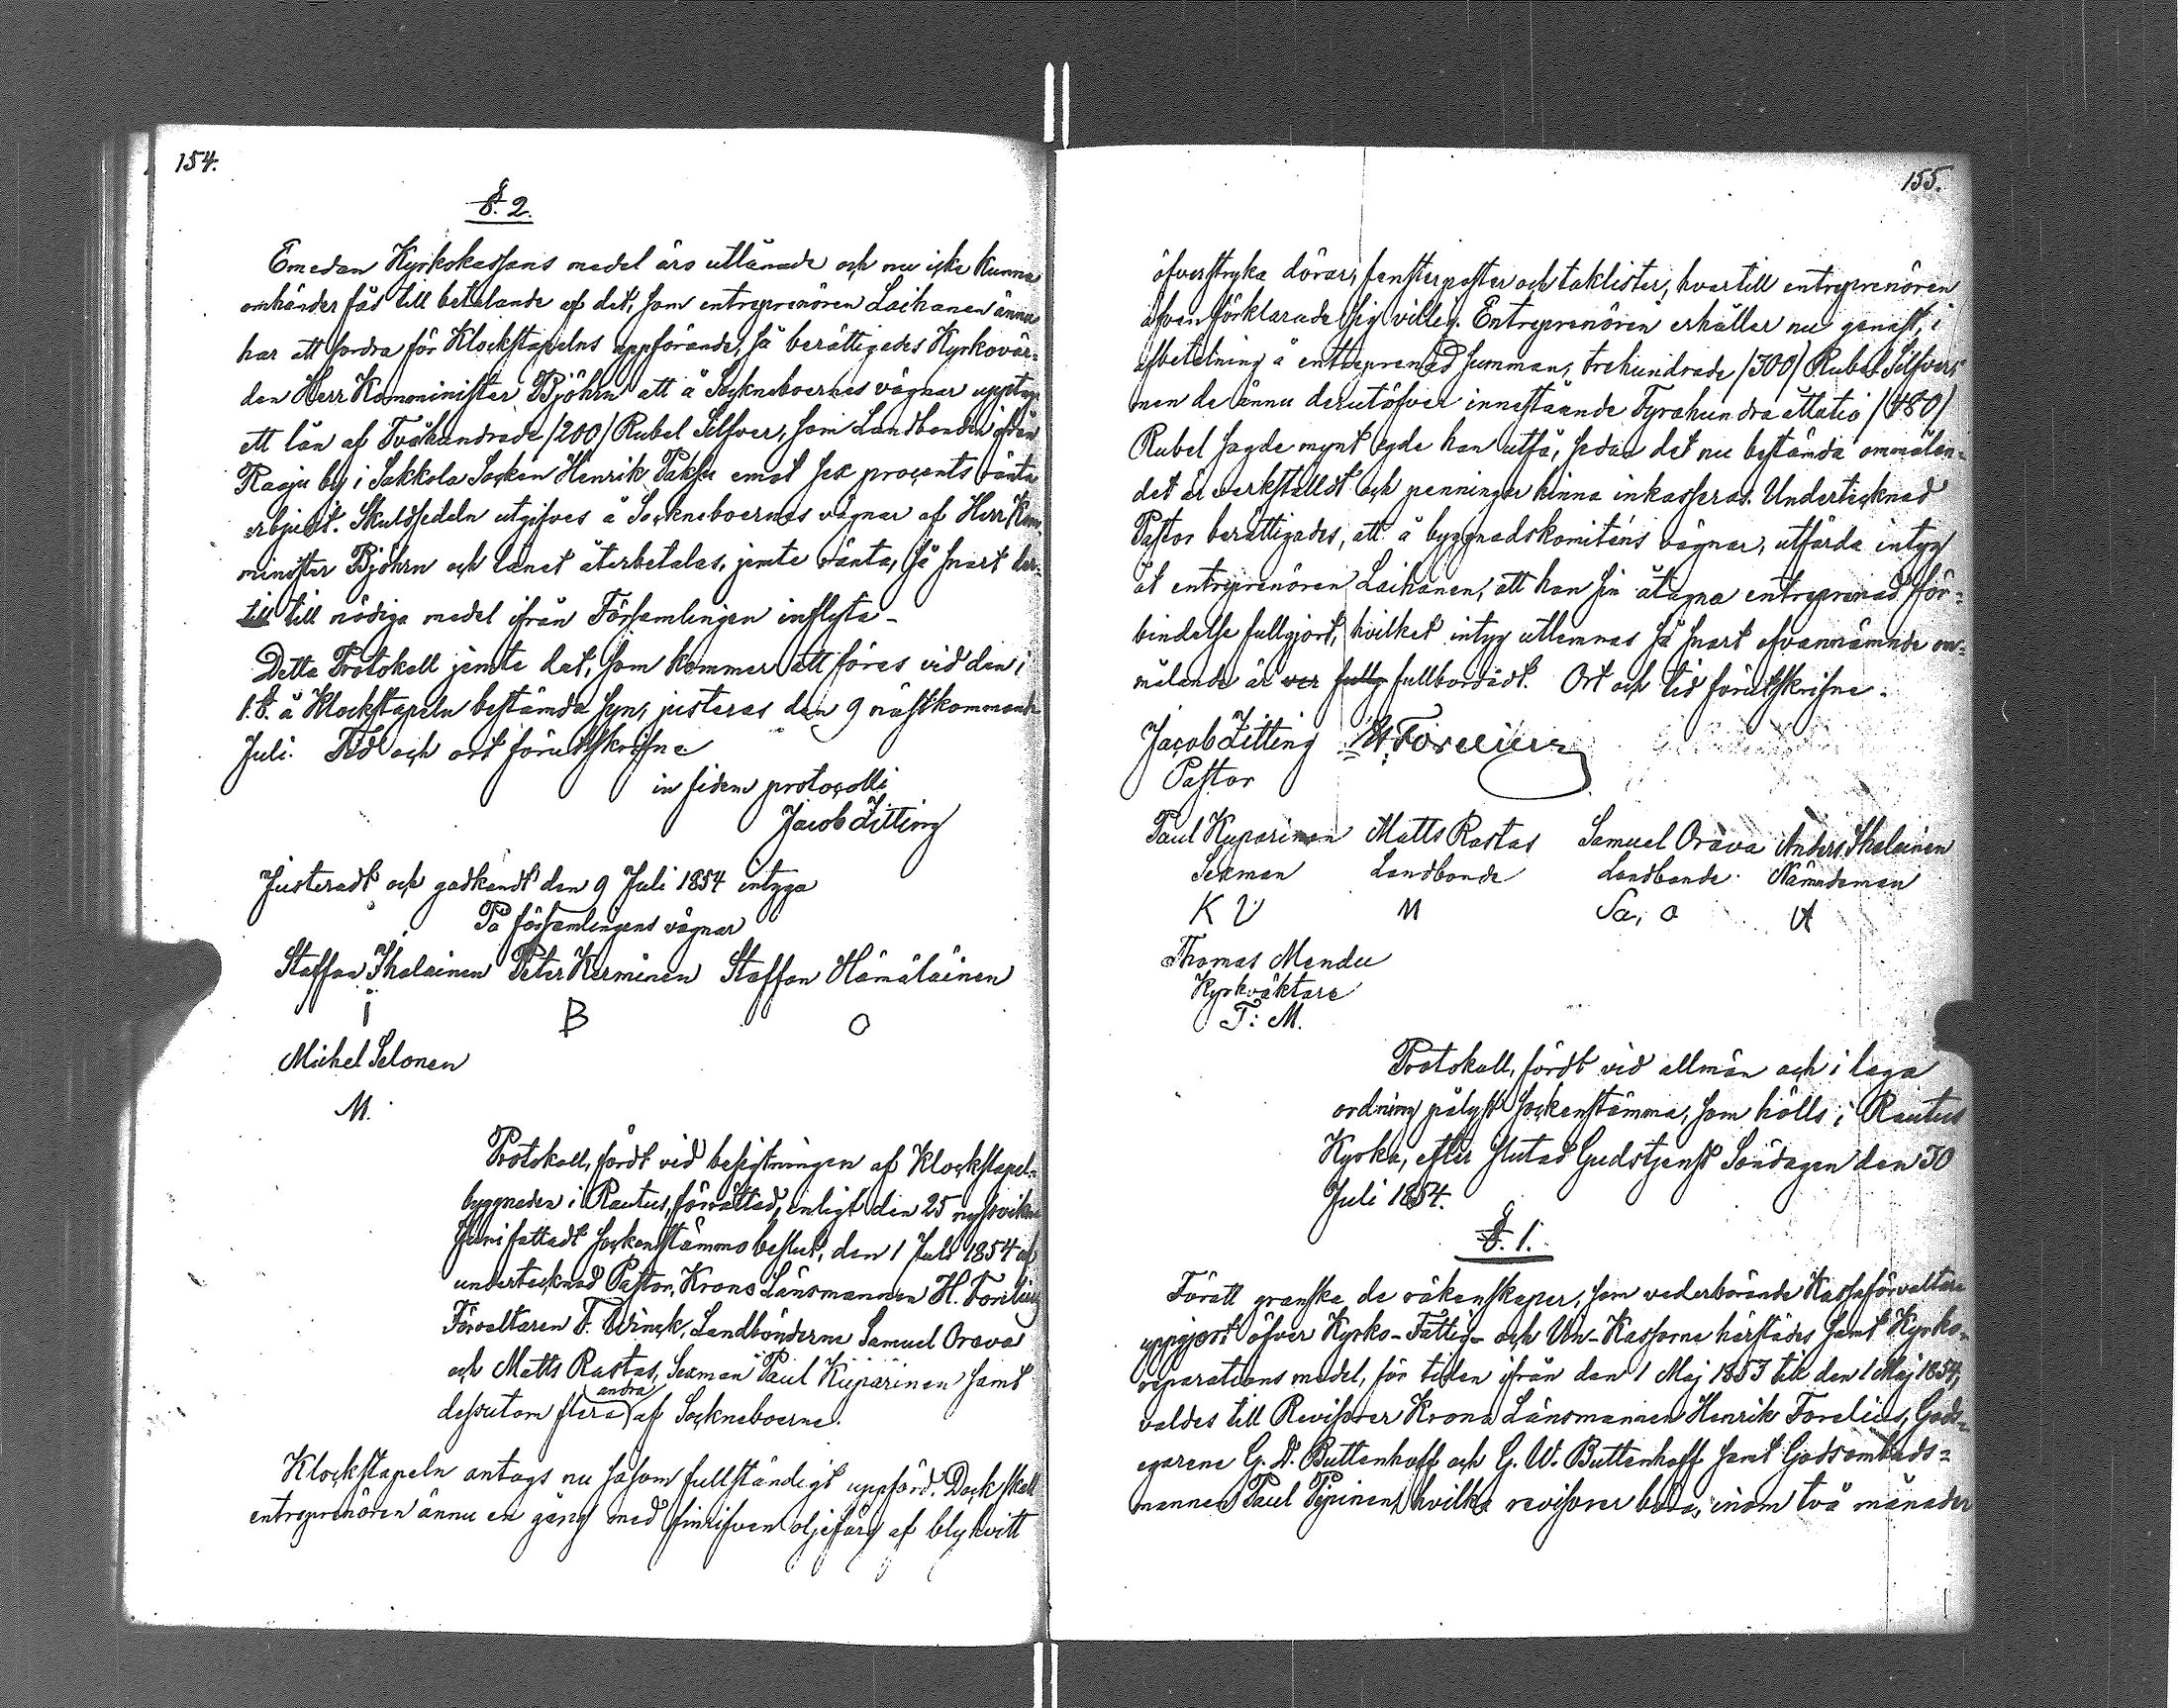 154.
§. 2.
Emedan Kyrkokassans medel äro utlånade och nu icke kunna
omhänder fås till betalande af det, som entreprenören Laihanen ännu
har att fordra för Klockstapelns uppförande, så berättigades Kyrkovär-
den Herr Komminister Björhn att å Sockneboernes vägnar upptaga
ett lån af Tvåhundrade /200/ Rubel Silfver, som Landbonden ifrån
Raaju by i Sakkola Socken Henrik Paksu emot sex procents ränta
erbjudit. Skuldsedeln utgifves å Sockneboernes vägnar af Herr Kom-
minister Björhn och lånet återbetalas, jemte ränta, så snart der-
till till nödiga medel ifrån Församlingen inflyta.
Detta Protokoll jemte det, som kommer att föras vid den i
1. §. å Klockstapeln bestämda syn, justeras den 9 nästkommande
Juli. Tid och ort förutskrifne
in fidem protocolli
Jacob Zitting
Justeradt och godkändt den 9 Juli 1854 intyga
På församlingens vägnar
Staffan Ihalainen Peter Kerminen Staffan Hämäläinen
I B O
Michel Ilonen
M.
Protokoll, fördt vid besigtningen af Klockstapel-
byggnaden i Rautus, förrättad, enligt den 25 nyssvikne
Juni fattadt sockenstämmobeslut, den 1 Juli 1854 af
undertecknad Pastor, Krono Länsmannen H. Forelius
Förvaltaren F. Winck, Landbönderne Samuel Orava
och Matts Rastas, Sexman Paul Kuparinen samt
andra
dessutom flera af Sockneboerne.
Klockstapeln antogs nu såsom fullständigt uppförd. Dock skall
entreprenören ännu en gång med finrifven oljefärg af blyhvitt
155.
öfverstryka dörar, fensterposter och taklister, hvartill entreprenören
äfven förklarade sig villig. Entreprenören erhåller nu genast, i
afbetalning å entreprenad summan, trehundrade /300/ Rubel Silfver;
men de ännu derutöfver innestående Fyrahundra åttatio /480/
Rubel sagde mynt egde han utfå, sedan det nu bestämda ommålan-
det är verkställdt och penningar hinna inkasseras. Undertecknad
Pastor berättigades, att å byggnadskomiténs vägnar, utfärda intyg
åt entreprenören Laihanen, att han sin åtagna entreprenad för-
bindelse fullgjort, hvilket intyg utlemnas så snart ofvannämnde om-
målande är ver fullg fullbordadt. Ort och tid förutskrifne.
Jacob Zitting H. Forelius
Pastor
Paul Kuparinen Matts Rastas Samuel Orava Anders Ihalainen
Sexman Landbonde Landbonde Nämndeman
K V M Sa, O A
Thomas Mendu
Kyrkväktare
T: M.
Protokoll, fördt vid allmän och i laga
ordning pålyst sockenstämma, som hölls i Rautus
Kyrka, efter slutad Gudstjenst Söndagen den 30
Juli 1854.
§. 1.
Föratt granska de räkenskaper, som vederbörande Kassaförvaltare
uppgjort öfver Kyrko- Fattig- och Vin- Kassorne härstädes samt Kyrko-
reparations medel, för tiden ifrån den 1 Maj 1853 till den 1 Maj 1854,
valdes till Revisorer Krono Länsmannen Henrik Forelius, Gods-
egarene G. A. Buttenhoff och G. W. Buttenhoff samt Godsombuds-
mannen Paul Pepinen, hvilka revisorer böra, inom två månader